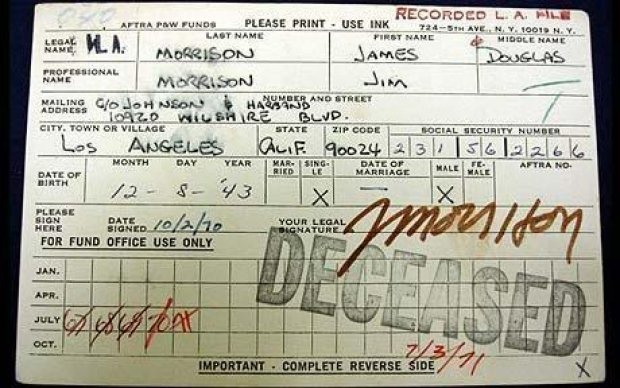 AFTRA P&W FUNDS PLEASE PRINT - USE INK RECORDED L. A. FILE
724-5th AVE., N.Y. 10019 N. Y.
LAST NAME FIRST NAME MIDDLE NAME
LEGAL NAME MORRISON JAMES DOUGLAS
PROFESSIONAL NAME MORRISON JIM
NUMBER AND STREET
MAILING ADDRESS C/O JOHNSON & HARBAND
10920 WILSHIRE BLVD.
CITY, TOWN OR VILLAGE STATE ZIP CODE SOCIAL SECURITY NUMBER
LOS ANGELES CALIF. 90024 231 56 2266
MONTH DAY YEAR MAR-RIED SIN-GLE DATE OF MARRIAGE MALE FE-MALE AFTRA NO.
DATE OF BIRTH 12 - 8 - '43 X — X
PLEASE SIGN HERE DATE SIGNED 10/2/70 YOUR LEGAL SIGNATURE JMorrison
FOR FUND OFFICE USE ONLY
DECEASED
JAN.
APR.
JULY 67 68 69 70
OCT.
7/3/71
IMPORTANT - COMPLETE REVERSE SIDE X